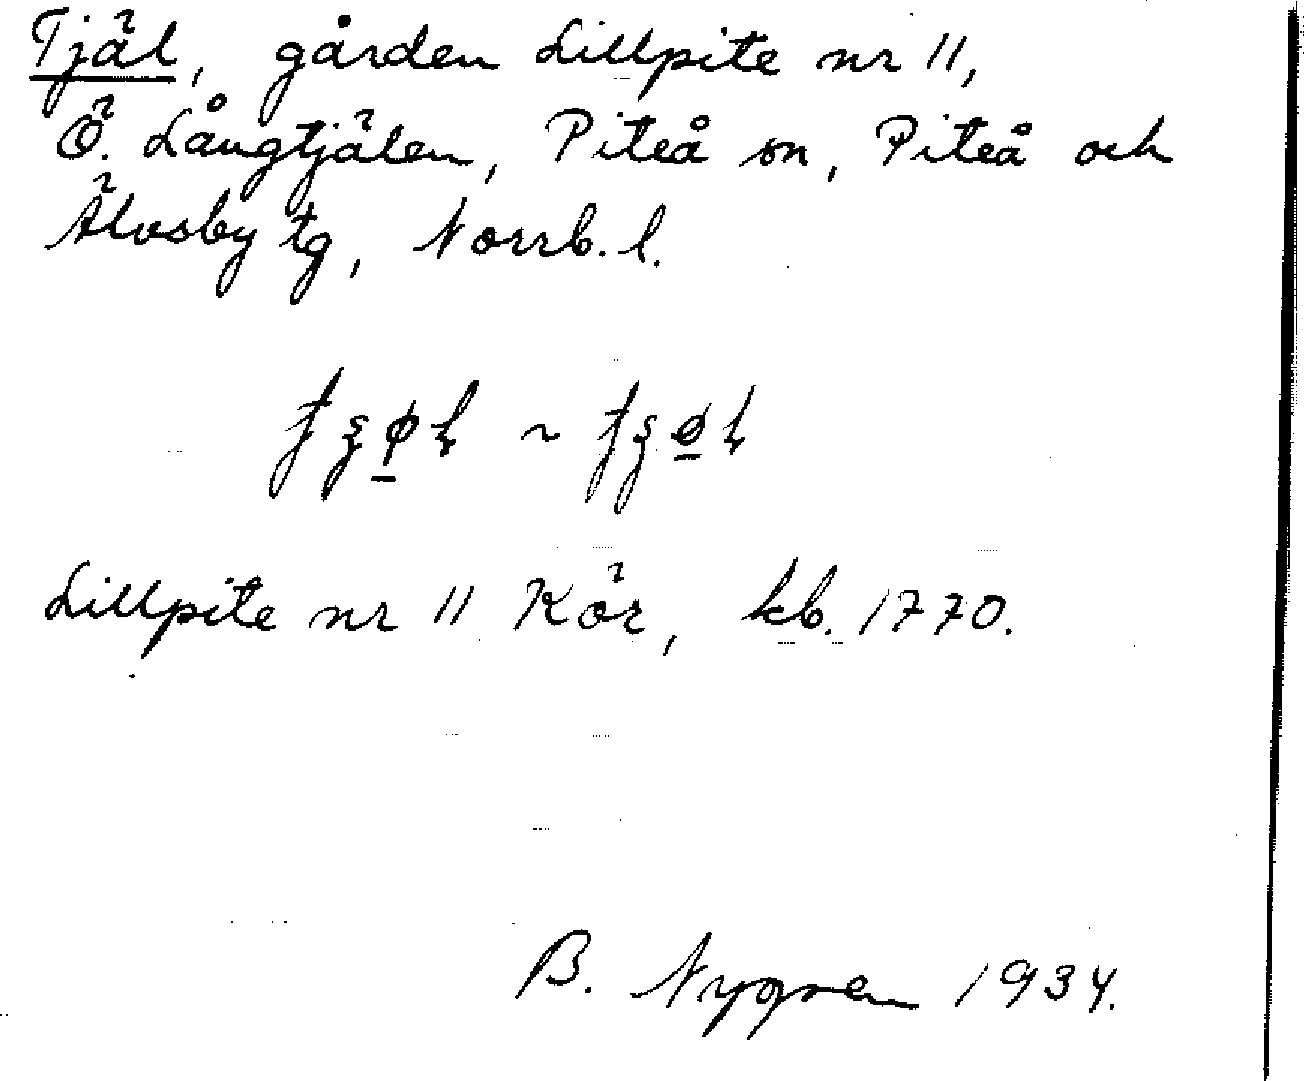 Tjäl, gården Lillpite nr 11,
Ö. Långtjälen, Piteå sn, Piteå och
Älvsby tg, Norrb. l.
~
Lillpite nr 11 Kör, kb. 1770.
B. Nygren 1934.